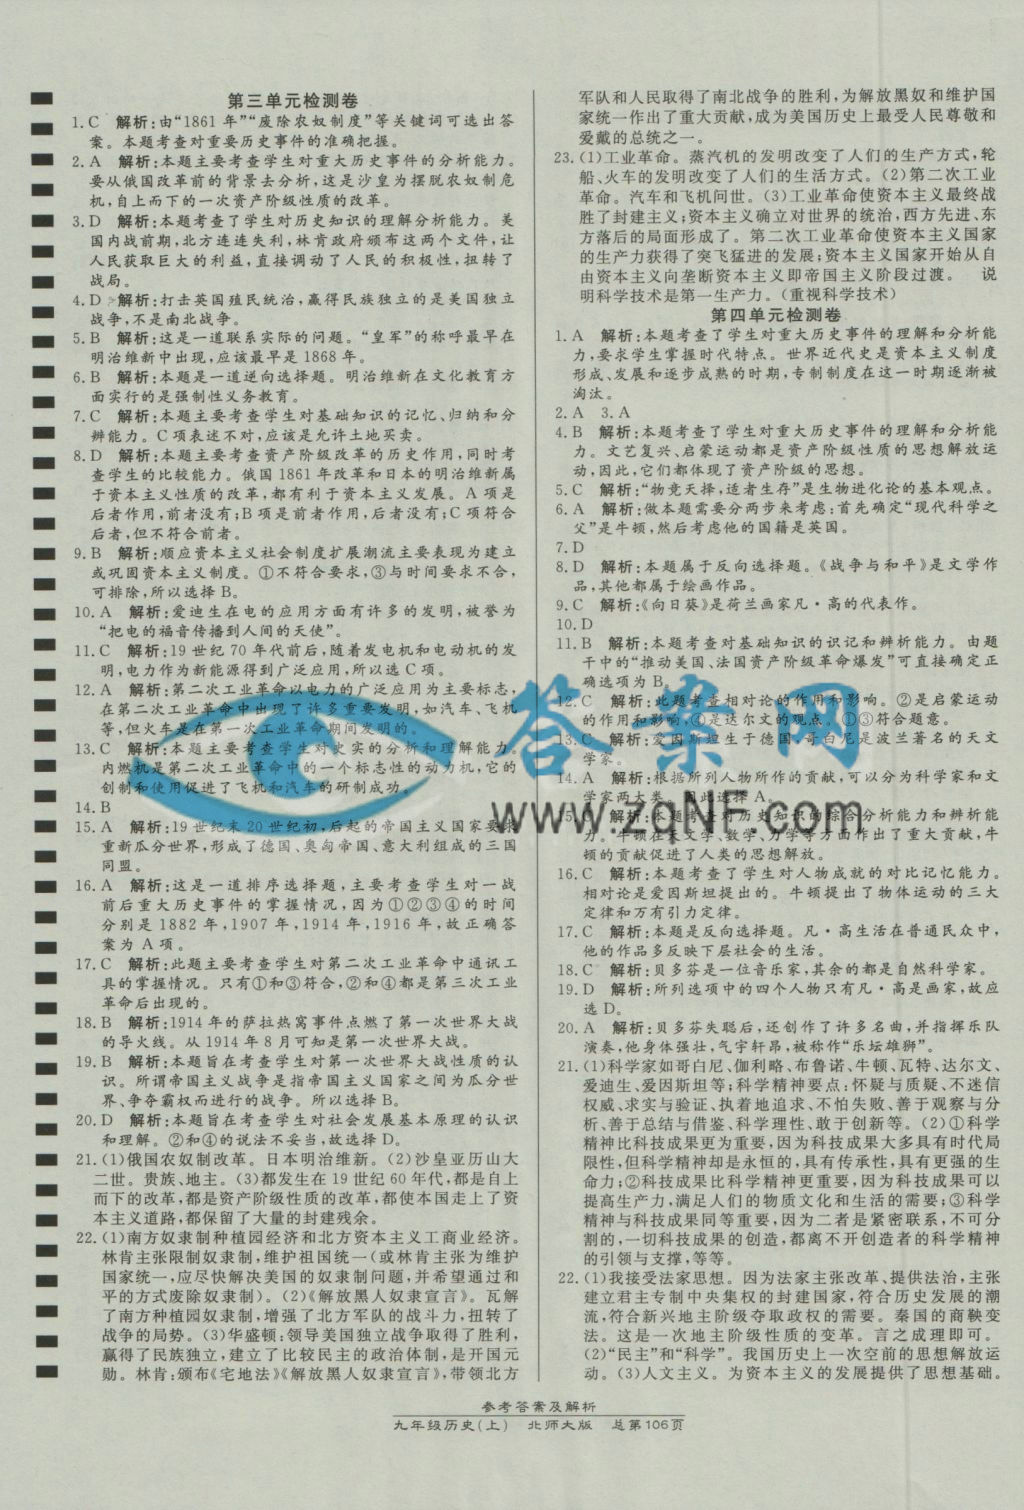 第三单元检测卷
1. C　解析:由“1861年”“废除农奴制度”等关键词可选出答
案。本题考查对重要历史事件的准确把握。
2. A　解析:本题主要考查学生对重大历史事件的分析能力。
要从俄国改革前的背景去分析,这是沙皇为摆脱农奴制危
机,自上而下的一次资产阶级性质的改革。
3. D　解析:本题考查了学生对历史知识的理解分析能力。美
国内战前期,北方连连失利,林肯政府颁布这两个文件,让
人民获取巨大的利益,直接调动了人民的积极性,扭转了
战局。
4. D　解析:打击英国殖民统治,赢得民族独立的是美国独立
战争,不是南北战争。
5. B　解析:这是一道联系实际的问题。“皇军”的称呼最早在
明治维新中出现,应该最早是1868年。
6. B　解析:本题是一道逆向选择题。明治维新在文化教育方
面实行的是强制性义务教育。
7. C　解析:本题主要考查学生对基础知识的记忆、归纳和分
辨能力。C项表述不对,应该是允许土地买卖。
8. D　解析:本题主要考查资产阶级改革的历史作用,同时考
查学生的比较能力。俄国1861年改革和日本的明治维新属
于资本主义性质的改革,都有利于资本主义发展。A项是
后者作用,前者没有;B项是前者作用,后者没有;C项符合
后者,但不符合前者。
9. B　解析:顺应资本主义社会制度扩展潮流主要表现为建立
或巩固资本主义制度。①不符合要求,③与时间要求不合,
可排除,所以选择B。
10. A　解析:爱迪生在电的应用方面有许多的发明,被誉为
“把电的福音传播到人间的天使”。
11. C　解析:19世纪70年代前后,随着发电机和电动机的发
明,电力作为新能源得到广泛应用,所以选C项。
12. A　解析:第二次工业革命以电力的广泛应用为主要标志,
在第二次工业革命中出现了许多重要发明,如汽车、飞机
等,但火车是在第一次工业革命期间发明的。
13. C　解析:本题主要考查学生对史实的分析和理解能力。
内燃机是第二次工业革命中的一个标志性的动力机,它的
创制和使用促进了飞机和汽车的研制成功。
14. B
15. A　解析:19世纪末20世纪初,后起的帝国主义国家要求
重新瓜分世界,形成了德国、奥匈帝国、意大利组成的三国
同盟。
16. A　解析:这是一道排序选择题,主要考查学生对一战
前后重大历史事件的掌握情况,因为①②③④的时间
分别是1882年,1907年,1914年,1916年,故正确答
案为A项。
17. C　解析:此题主要考查学生对第二次工业革命中通讯工
具的掌握情况。只有①和③符合,②和④都是第三次工业
革命后出现的。
18. B　解析:1914年的萨拉热窝事件点燃了第一次世界大战
的导火线。从1914年8月可知是第一次世界大战。
19. B　解析:本题旨在考查学生对第一次世界大战性质的认
识。所谓帝国主义战争是指帝国主义国家之间为瓜分世
界、争夺霸权而进行的战争。所以选择B。
20. D　解析:本题旨在考查学生对社会发展基本原理的认识
和理解。②和④的说法不妥当,故选择D。
21. (1)俄国农奴制改革。日本明治维新。(2)沙皇亚历山大
二世。贵族、地主。(3)都发生在19世纪60年代,都是自上
而下的改革,都是资产阶级性质的改革,都使本国走上了资
本主义道路,都保留了大量的封建残余。
22. (1)南方奴隶制种植园经济和北方资本主义工商业经济。
林肯主张限制奴隶制,维护祖国统一(或林肯主张为维护
国家统一,应尽快解决美国的奴隶制问题,并希望通过和
平的方式废除奴隶制)。(2)《解放黑人奴隶宣言》。瓦解
了南方种植园奴隶制,增强了北方军队的战斗力,扭转了
战争的局势。(3)华盛顿:领导美国独立战争取得了胜利,
赢得了民族独立,建立了比较民主的政治体制,是开国元
勋。林肯:颁布《宅地法》《解放黑人奴隶宣言》,带领北方
军队和人民取得了南北战争的胜利,为解放黑奴和维护国
家统一作出了重大贡献,成为美国历史上最受人民尊敬和
爱戴的总统之一。
23. (1)工业革命。蒸汽机的发明改变了人们的生产方式,轮
船、火车的发明改变了人们的生活方式。(2)第二次工业
革命。汽车和飞机问世。(3)工业革命使资本主义最终战
胜了封建主义;资本主义确立对世界的统治,西方先进、东
方落后的局面形成了。第二次工业革命使资本主义国家
的生产力获得了突飞猛进的发展;资本主义国家开始从自
由资本主义向垄断资本主义即帝国主义阶段过渡。　说
明科学技术是第一生产力。(重视科学技术)
第四单元检测卷
1. A　解析:本题考查了学生对重大历史事件的理解和分析能
力,要求学生掌握时代特点。世界近代史是资本主义制度
形成、发展和逐步成熟的时期,专制制度在这一时期逐渐被
淘汰。
2. A　3. A
4. B　解析:本题考查了学生对重大历史事件的理解和分析能
力。文艺复兴、启蒙运动都是资产阶级性质的思想解放运
动,因此,它们都体现了资产阶级的思想。
5. C　解析:“物竞天择,适者生存”是生物进化论的基本观点。
6. A　解析:做本题需要分两步来考虑:首先确定“现代科学之
父”是牛顿,然后考虑他的国籍是英国。
7. D
8. D　解析:本题属于反向选择题。《战争与和平》是文学作
品,其他都属于绘画作品。
9. C　解析:《向日葵》是荷兰画家凡·高的代表作。
10. D
11. B　解析:本题考查对基础知识的识记和辨析能力。由题
干中的“推动美国、法国资产阶级革命爆发”可直接确定正
确选项为B。
12. C　解析:此题考查相对论的作用和影响。②是启蒙运动
的作用和影响,④是达尔文的观点。①③符合题意。
13. C　解析:爱因斯坦生于德国,哥白尼是波兰著名的天文
学家。
14. A　解析:根据所列人物所作的贡献,可以分为科学家和文
学家两大类。因此选择A。
15. C　解析:本题考查对历史知识的综合分析能力和辨析能
力。牛顿在天文学、数学、力学等方面作出了重大贡献,牛
顿的贡献促进了人类的思想解放。
16. C　解析:本题考查了学生对人物成就的对比记忆能力。
相对论是爱因斯坦提出的。牛顿提出了物体运动的三大
定律和万有引力定律。
17. C　解析:本题是反向选择题。凡·高生活在普通民众中,
他的作品多反映下层社会的生活。
18. C　解析:贝多芬是一位音乐家,其余的都是自然科学家。
19. D　解析:所列选项中的四个人物只有凡·高是画家,故应
选D。
20. A　解析:贝多芬失聪后,还创作了许多名曲,并指挥乐队
演奏,他身体强壮,气宇轩昂,被称作“乐坛雄狮”。
21. (1)科学家如哥白尼、伽利略、布鲁诺、牛顿、瓦特、达尔文、
爱迪生、爱因斯坦等;科学精神要点:怀疑与质疑、不迷信
权威、求实与验证、执着地追求、不怕失败、善于观察与分
析、善于总结与借鉴、科学理性、敢于创新等。(2)①科学
精神比科技成果更为重要,因为科技成果大多具有时代局
限性,但科学精神却是永恒的,具有传承性,具有更强的生
命力;②科技成果比科学精神更重要,因为科技成果可以
提高生产力,满足人们的物质文化和生活的需要;③科学
精神与科技成果同等重要,因为二者是紧密联系,不可分
割的,一切科技成果的创造,都离不开创造者的科学精神
的引领与支撑,等等。
22. (1)我接受法家思想。因为法家主张改革、提供法治,主张
建立君主专制中央集权的封建国家,符合历史发展的潮
流,符合新兴地主阶级夺取政权的需要。秦国的商鞅变
法。这是一次地主阶级性质的变革。言之成理即可。
(2)“民主”和“科学”。我国历史上一次空前的思想解放运
动。(3)人文主义。为资本主义的发展提供了思想基础。
答案网
www.zqNF.com
参考答案及解析
九年级历史(上)　北师大版　总第106页